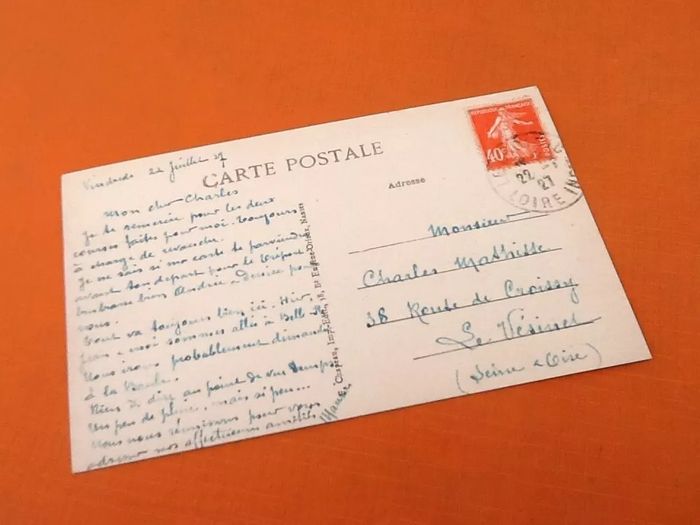 Vendredi 22 juillet 27
CARTE POSTALE
Mon cher Charles
Je te remercie pour les deux
courses faites pour moi. Toujours
à charge de revanche.
Je ne sais si ma carte te parviendra
avant ton départ pour le Tréport
Embrasse bien Andrée
nous.
Tout va toujours bien ici. Hier
sommes allés à Belle Ile
Nous irons probablement dimanche
à la Baule.
Rien à dire au point de vue temps
Un peu de pluie, mais si peu...
Nous nous réunissons pour vous
adresser nos affectueuses amitiés
Chapeau, Impr.-Edit., 18, Bd Nantes
Adresse
Monsieur
Charles Mathisse
38 Route de Croissy
Le Vésinet
(Seine & Oise)
REPUBLIQUE FRANÇAISE
40c
22
27
LOIRE